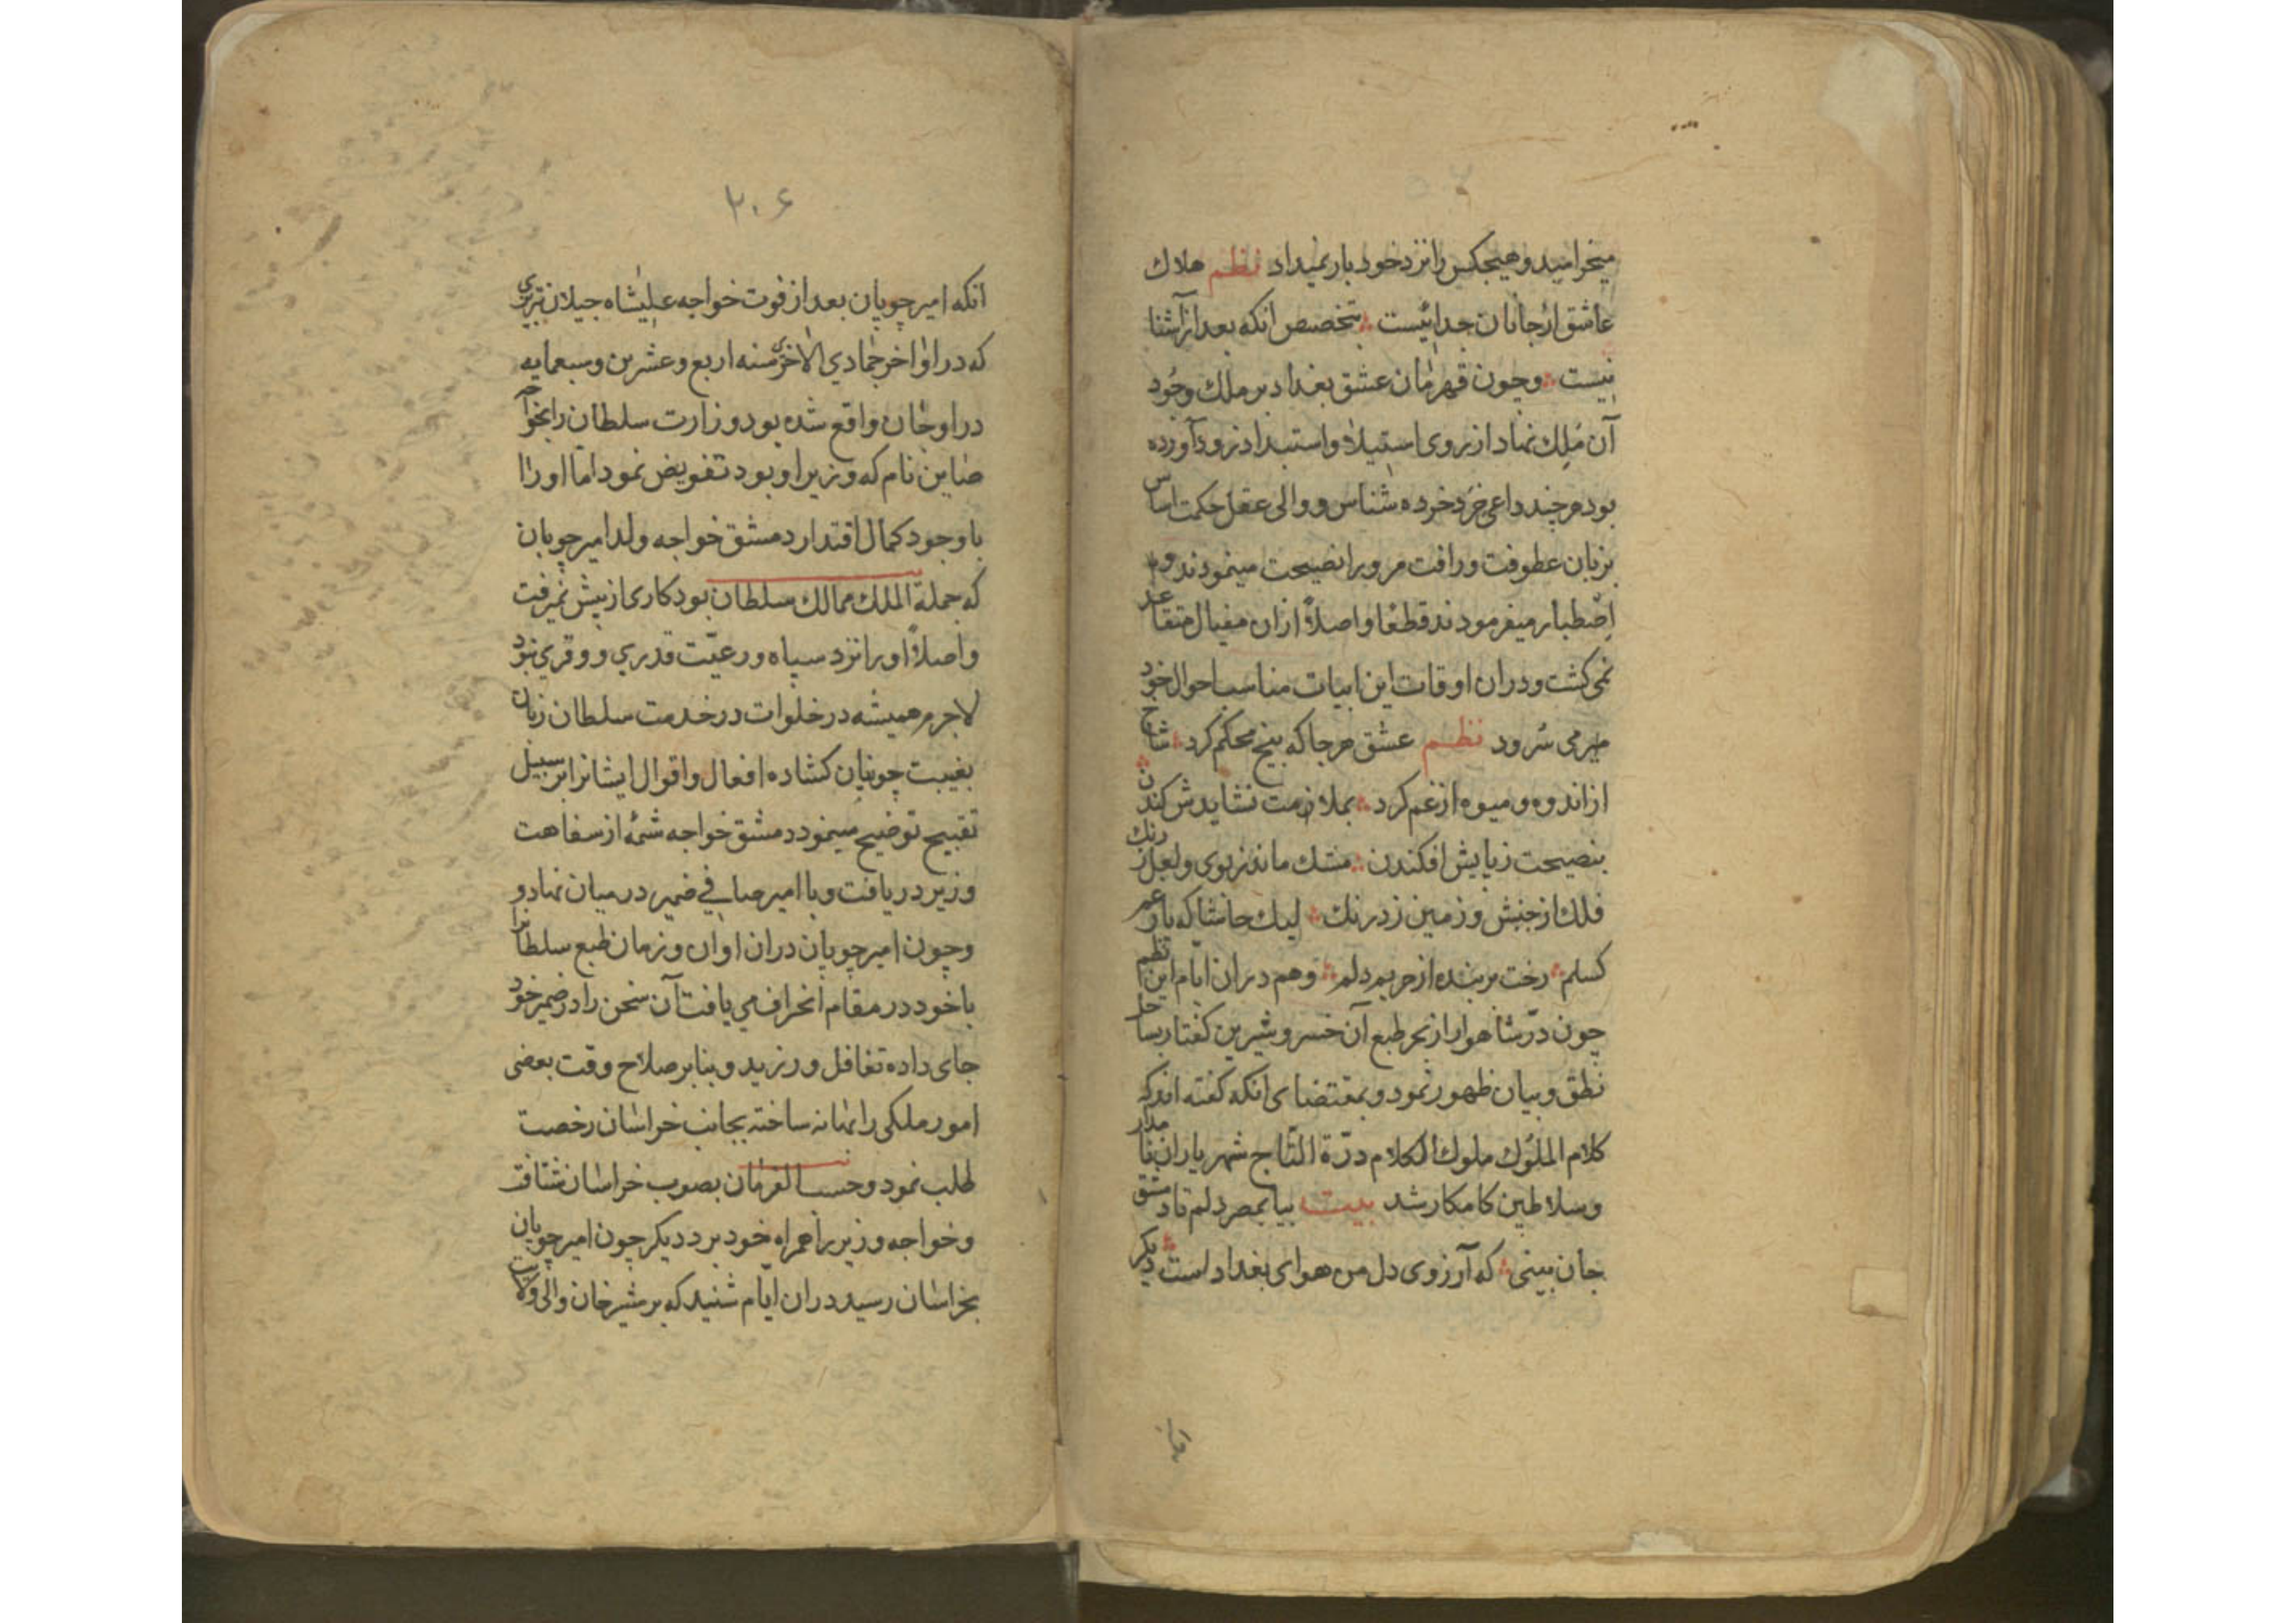 میخرامید و هیچکس را نزد خود بار نمیداد نظم هلاک
عاشق از جانان جدائیست بتخصیص انکه بعد از آشنا
ئیست وچون قهرمان عشق بغداد بر ملک وجود
آن مَلِک نهاد از روی استیلا و استبداد نزود آورده
بود هرچند داعی خرد خرده شناس و والی عقل حکمت اساس
بزبان عطوفت ورافت مرویرا نصیحت مینمودند وبه
اِصْطبار میفرمودند قطعًا واصلاً ازان مقیال متقاعد
نمی کشت ودران اوقات این ابیات مناسب احوال خود
می سُرود نظم عشق هرجا که بیخ محکم کرد شاخ
از اندوه و میوه از غم کرد بملازمت نشایدش کندن
بنصیحت ز پایش افکندن مشک ماند ز بوی ولعل از رنک
فلک از جنبش و زمین ز درنک لیک حاشا که یار
کسلم رخت بربندد از حریم دلم وهم دران ایّام این نظم
چون درّ شاهوار از بحر طبع آن خسرو شیرین کفتار بساحل
نطق و بیان ظهور نمود و بمقتضای انکه کفته اند که
کلام الملوُک ملوک الکلام درّة التّاج شهریاران
وسلاطین کامکار شد بیت بیا بمصر دلم تا دمشق
جان بینی که آرزوی دل من هوای بغداد است دیکر
انکه
۲۰۶
انکه امیر چوپان بعد از فوت خواجه علیشاه جیلان تبریزی
که در اواخر جمادي الاخری سنه اربع وعشرین وسبعمایه
در اوجان واقع شده بود وزارت سلطان را بخواجه
صاین نام که وزیر او بود تفویض نمود امّا او را
با وجود کمال اقتدار دمشق خواجه ولد امیر چوپان
که جملة الملک ممالک سلطان بود کاری از پیش نمیرفت
واصلاً او را نزد سپاه ورعیّت قدري ووقری نبود
لاجرم همیشه در خلوات در خدمت سلطان زبان
بغیبت چوپان کشاده افعال واقوال ایشانرا بر سبیل
تقبیح توضیح مینمود دمشق خواجه شمهٔ از سفاهت
وزیر دریافت وبا امیر صافي ضمیر در میان نهاد و
وچون امیر چوپان دران اوان وزمان طبع سلطانرا
با خود در مقام انحراف می یافت آن سخن را در ضمیر خود
جای داده تغافل ورزید وبنا بر صلاح وقت بعضی
امور ملکی را بهانه ساخته بجانب خراسان رخصت
طلب نمود وحسب الفرمان بصوب خراسان شتافت
وخواجه وزیر را همراه خود برد دیکر چون امیر چوپان
بخراسان رسید دران ایّام شنید که برشیرخان والی ولایت